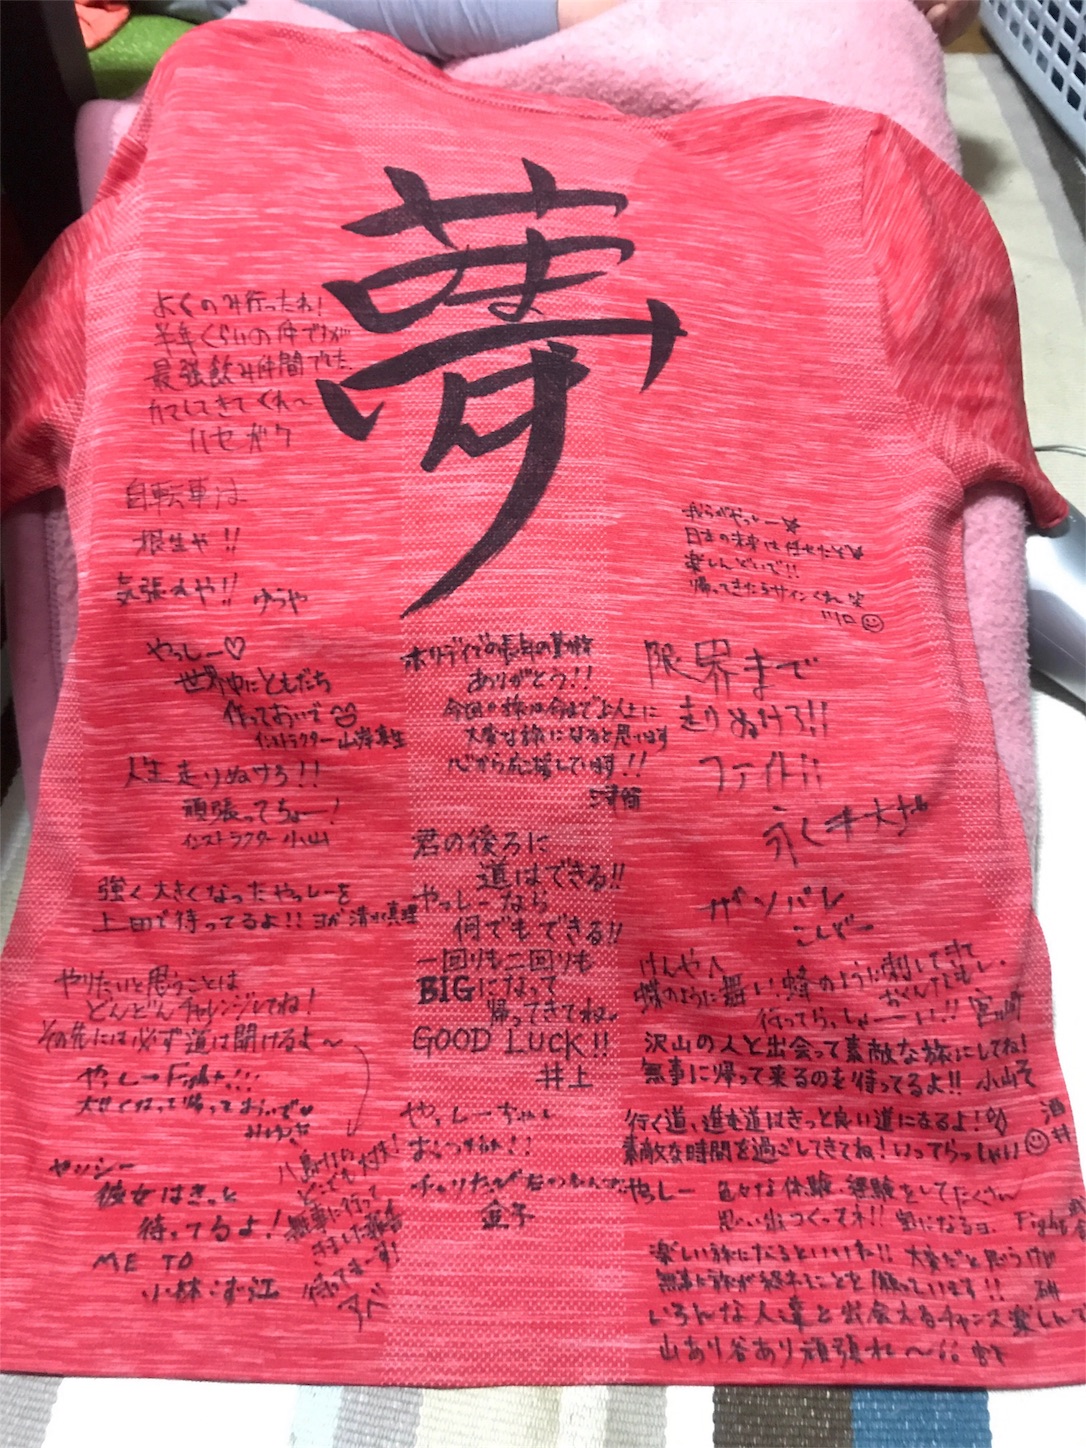 夢
よくのみ行ったね!
半年くらいの仲ですが
最強飲み仲間でした
かましてきてくれ〜
ハセガワ
自転車は
根性や!!
気張れや!! ゆうや
やっしー♡
世界中にともだち
作っておいで
インストラクター 山岸真生
人生走りぬけろ!!
頑張ってちょー!
インストラクター 小山
強く大きくなったやっしーを
上田で待ってるよ!! ヨガ 清水真理
やりたいと思うことは
どんどんチャレンジしてね!
その先には必ず道は開けるよ〜
やっしーFight!!!
大きくなって帰っておいで♥
ヤッシー
彼女はきっと
待ってるよ!
ME TO
小林
どこでも大丈夫!
無事に行って
きました報告
待ってまーす!
アベ
ホリデイでの長年の勤務
ありがとう!!
今回の旅は今まで以上に
大変な旅になると思います
心から応援しています!!
君の後ろに
道はできる!!
やっしーなら
何でもできる!!
一回りも二回りも
BIGになって
帰ってきてね。
GOOD LUCK!!
井上
やっしーちゃん
金子
我らがやっしー☆
日本の未来は任せたぞ
楽しんどいで!!
帰ってきたらサインくれ 笑
川口☺
限界まで
走りぬけろ!!
ファイト!!
ガンバレ
こんどー
けんやへ
蝶のように舞い、蜂のように刺して
行ってらっしゃーい!!
沢山の人と出会って素敵な旅にしてね!
無事に帰って来るのを待ってるよ!! 小山
行く道、進む道はきっと良い道になるよ!
素敵な時間を過ごしてきてね! いってらっしゃい☺ 酒井
やっしー 色々な体験、経験をしてたくさん
思い出つくってネ!! 気になるヨ。 Fight
楽しい旅になるといいね!! 大変だと思うけど
無事に旅が終わることを願っています!!
いろんな人達と出会えるチャンス楽しんで
山あり谷あり頑張れ〜